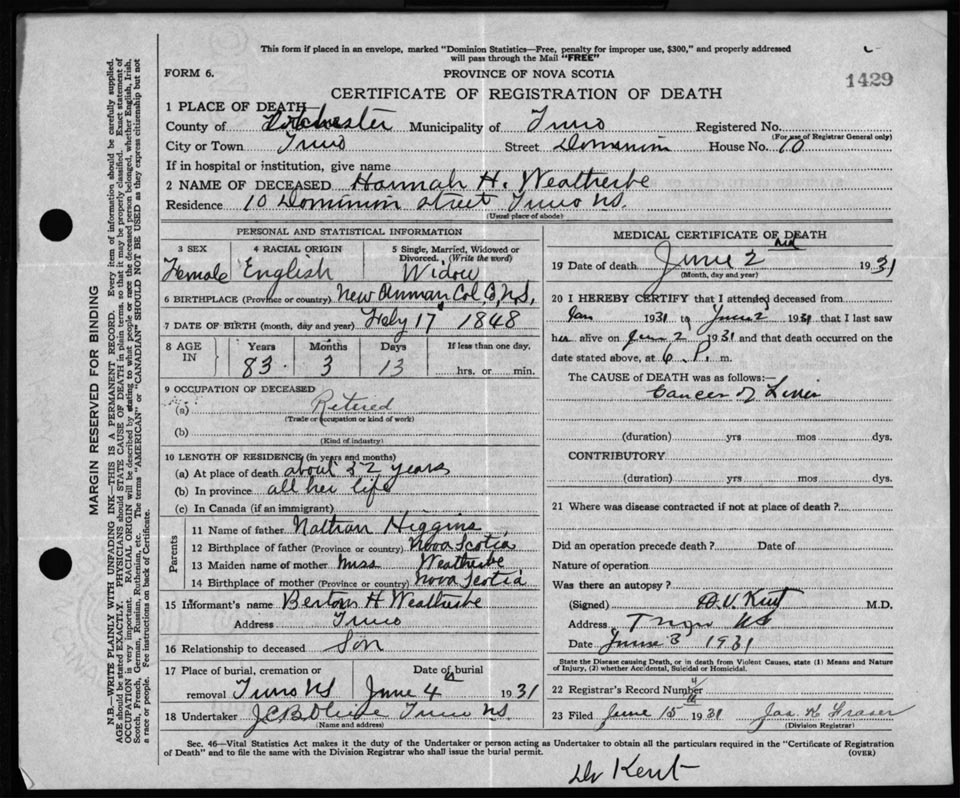 This form if placed in an envelope, marked "Dominion Statistics—Free, penalty for improper use, $300," and properly addressed
will pass through the Mail "FREE"
FORM 6.
PROVINCE OF NOVA SCOTIA
1429
CERTIFICATE OF REGISTRATION OF DEATH
1 PLACE OF DEATH
County of Colchester Municipality of Truro Registered No.
(For use of Registrar General only)
City or Town Truro Street Dominion House No. 10
If in hospital or institution, give name
2 NAME OF DECEASED Hannah H. Weatherbe
Residence 10 Dominion Street Truro N.S.
(Usual place of abode)
PERSONAL AND STATISTICAL INFORMATION
3 SEX 4 RACIAL ORIGIN 5 Single, Married, Widowed or
Divorced. (Write the word)
Female English Widow
6 BIRTHPLACE (Province or country) New Annan Col. Co, N.S,
7 DATE OF BIRTH (month, day and year) Feby 17 1848
8 AGE IN Years Months Days If less than one day.
83 3 13 hrs. or min.
9 OCCUPATION OF DECEASED
(a) Retired
(Trade or occupation or kind of work)
(b)
(Kind of industry)
10 LENGTH OF RESIDENCE (in years and months)
(a) At place of death about years
(b) In province all her life
(c) In Canada (if an immigrant)
Parents
11 Name of father Nathan Higgins
12 Birthplace of father (Province or country) Nova Scotia
13 Maiden name of mother Miss Weatherbe
14 Birthplace of mother (Province or country) Nova Scotia
15 Informant's name Bertom H Weatherbe
Address Truro
16 Relationship to deceased Son
17 Place of burial, cremation or Date of burial
removal Truro NS June 4 1931
18 Undertaker Truro N.S.
(Name and address)
MEDICAL CERTIFICATE OF DEATH
19 Date of death June 2nd 1931
(Month, day and year)
20 I HEREBY CERTIFY that I attended deceased from
Jan 1931 to June 2 1931 that I last saw
her alive on June 2 1931 and that death occurred on the
date stated above, at 6 P. m.
The CAUSE of DEATH was as follows:—
Cancer of Liver
(duration) yrs mos dys.
CONTRIBUTORY
(duration) yrs mos dys.
21 Where was disease contracted if not at place of death?
Did an operation precede death? Date of
Nature of operation
Was there an autopsy?
(Signed) H.V. Kent M.D.
Address Truro NS
Date June 3 1931
State the Disease causing Death, or in death from Violent Causes, state (1) Means and Nature
of Injury, (2) whether Accidental, Suicidal or Homicidal.
22 Registrar's Record Number
23 Filed June 15 1931 Jas W Fraser
(Division Registrar)
Sec. 46—Vital Statistics Act makes it the duty of the Undertaker or person acting as Undertaker to obtain all the particulars required in the "Certificate of Registration
of Death" and to file the same with the Division Registrar who shall issue the burial permit. (OVER)
Dr Kent
MARGIN RESERVED FOR BINDING
N.B.—WRITE PLAINLY WITH UNFADING INK—THIS IS A PERMANENT RECORD. Every item of information should be carefully supplied.
AGE should be stated EXACTLY. PHYSICIANS should STATE CAUSE OF DEATH in plain terms, so that it may be properly classified. Exact statement of
OCCUPATION is very important. RACIAL ORIGIN will be described by stating to what people or race the deceased person belonged, whether English, Irish,
Scotch, French, German, Russian, Ruthenian, etc. The terms "AMERICAN" or "CANADIAN" SHOULD NOT BE USED as they express citizenship but not
a race or people. Fee instructions on back of Certificate.